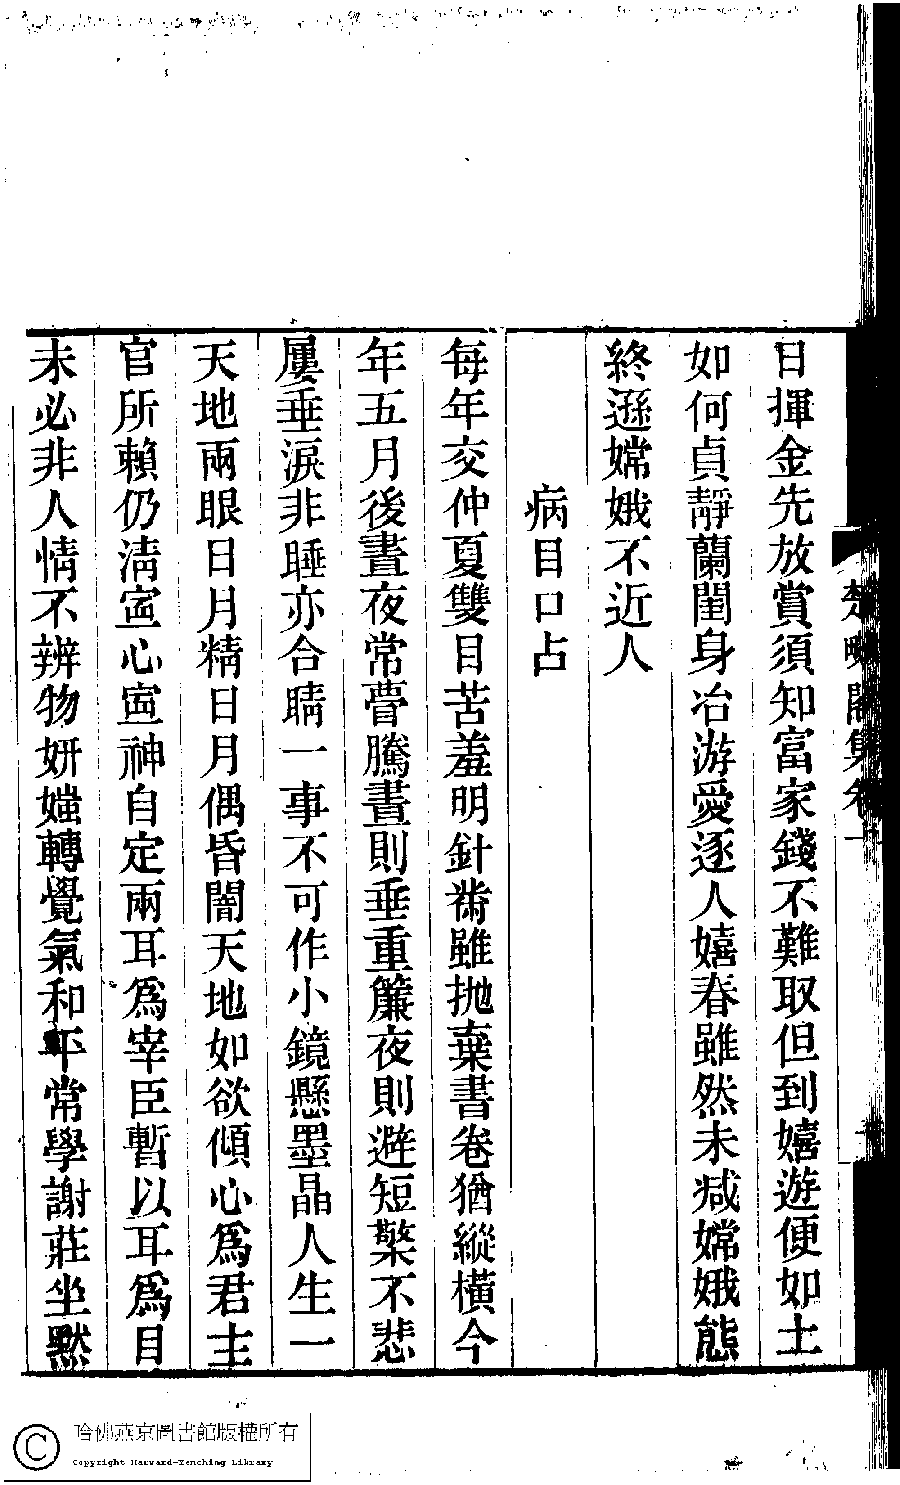 日揮金先放賞須知富家錢不難取但到嬉遊便如土
如何貞靜蘭閨身冶游愛逐人嬉春雖然未減嫦娥態
終遜嫦娥不近人
病目口占
每年交仲夏雙目苦羞明針黹雖拋棄書卷猶縱橫今
年五月後晝夜常瞢騰晝則垂重簾夜則避短檠不悲
屢垂淚非睡亦合睛一事不可作小鏡懸墨晶人生一
天地兩眼日月精日月偶昏闇天地如欲傾心為君主
官所賴仍清寍心寍神自定兩耳為宰臣暫以耳為目
未必非人情不辨物妍媸轉覺氣和平常學謝莊坐默
閣集卷一
哈佛燕京圖書館版權所有
Copyright Harvard-Yenching Library